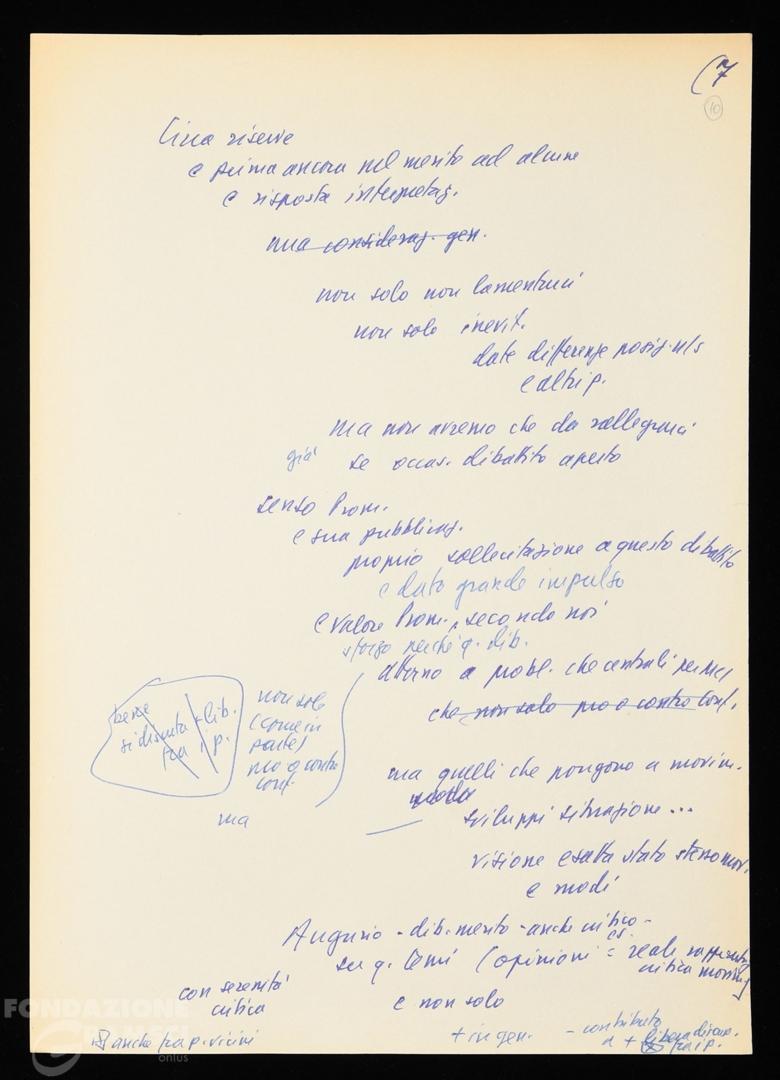 (7
10
Circa riserve
e prima ancora nel merito ad alcune
e risposta interpretaz.
una consideraz. gen.
non solo non lamentarci
non solo inevit.
date differenze posiz. n/s
e altri p.
ma non avremo che da rallegrarci
già se occas. dibattito aperto
senso Prom.
e sua pubblicaz.
proprio sollecitazione a questo dibattito
e dato grande impulso
e valore Prom., secondo noi
sforzo perché q. dib.
attorno a probl. che centrali per
che non solo pro o contro Conf.
bene
si discuta + lib.
tra i p.
non solo
(come in
parte)
pro o contro
Conf.
ma
ma quelli che pongono a movim.
sviluppi situazione ...
visione esatta stato stesso mov.
e modi
Augurio - dib. merito - anche critico -
su q. temi (opinioni
reale
critica
con serenità
critica
e non solo
anche tra p. vicini
+ in gen.
- contributo
a + libera discus.
tra i p.
FONDAZIONE
GRAMSCI
onlus